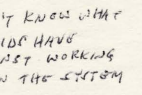 'T KNOW WHAT
IDS HAVE
NST WORKING
N THE SYSTEM